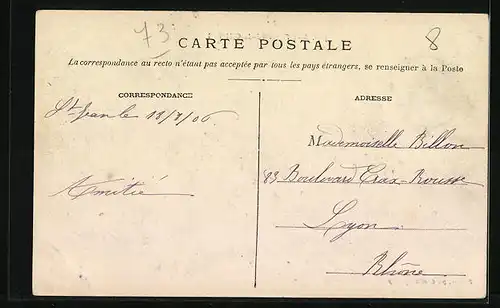 73
8
CARTE POSTALE
La correspondance au recto n'étant pas acceptée par tous les pays étrangers, se renseigner à la Poste
CORRESPONDANCE
St Jean le 18/7/06
Amitié
ADRESSE
Mademoiselle Billon
83 Boulevard Croix-Rousse
Lyon
Rhône